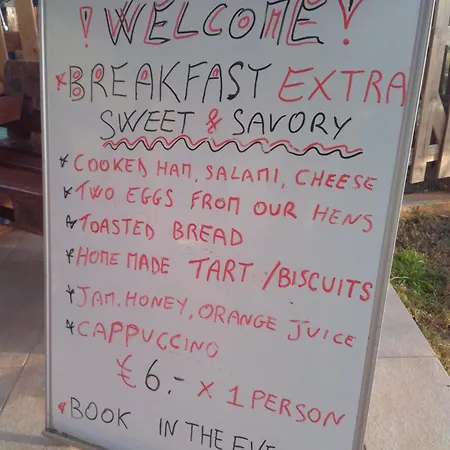 ! WELCOME !
* BREAKFAST EXTRA
SWEET & SAVORY
* COOKED HAM, SALAMI, CHEESE
* TWO EGGS FROM OUR HENS
* TOASTED BREAD
* HOME MADE TART / BISCUITS
* JAM, HONEY, ORANGE JUICE
* CAPPUCCINO
€ 6.- x 1 PERSON
* BOOK IN THE